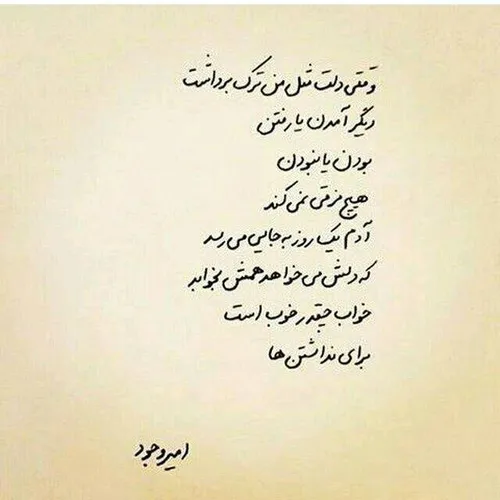 وقتی دلت مثل من ترک برداشت
دیگر آمدن یا رفتن
بودن یا نبودن
هیچ فرقی نمی کند
آدم یک روز به جایی می رسد
که دلش می خواهد همش بخوابد
خواب چقدر خوب است
برای نداشتن ها
امیر وجود